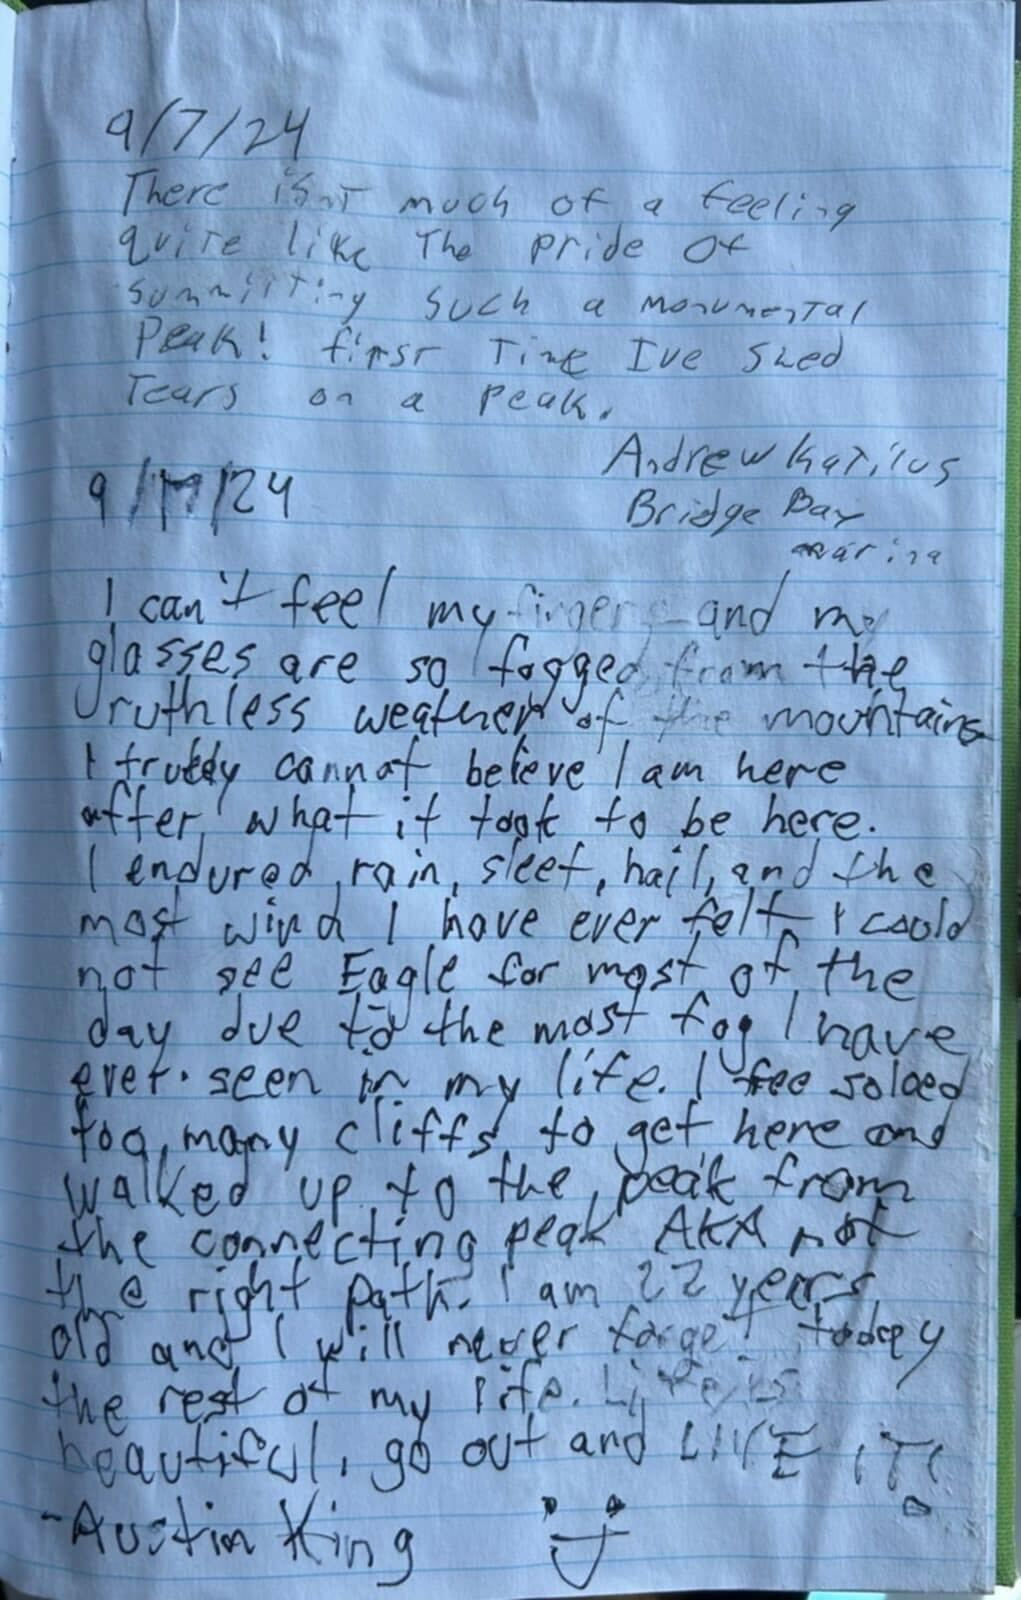 9/7/24
There isnt much of a feeling
quite like The pride of
summitting such a monumental
Peak! first Time Ive shed
Tears on a peak.
Andrew
Bridge Bay
marina
9/17/24
I can't feel my fingers and my
glasses are so fogged from the
ruthless weather of the mountains
I truely cannot believe I am here
after what it took to be here.
I endured rain, sleet, hail, and the
most wind I have ever felt I could
not see Eagle for most of the
day due to the most fog I have
ever seen in my life. I free soloed
too many cliffs to get here and
walked up to the peak from
the connecting peak AKA not
the right path. I am 22 years
old and I will never forget today
the rest of my life. Life is
beautiful, go out and LIVE IT!
-Austin King